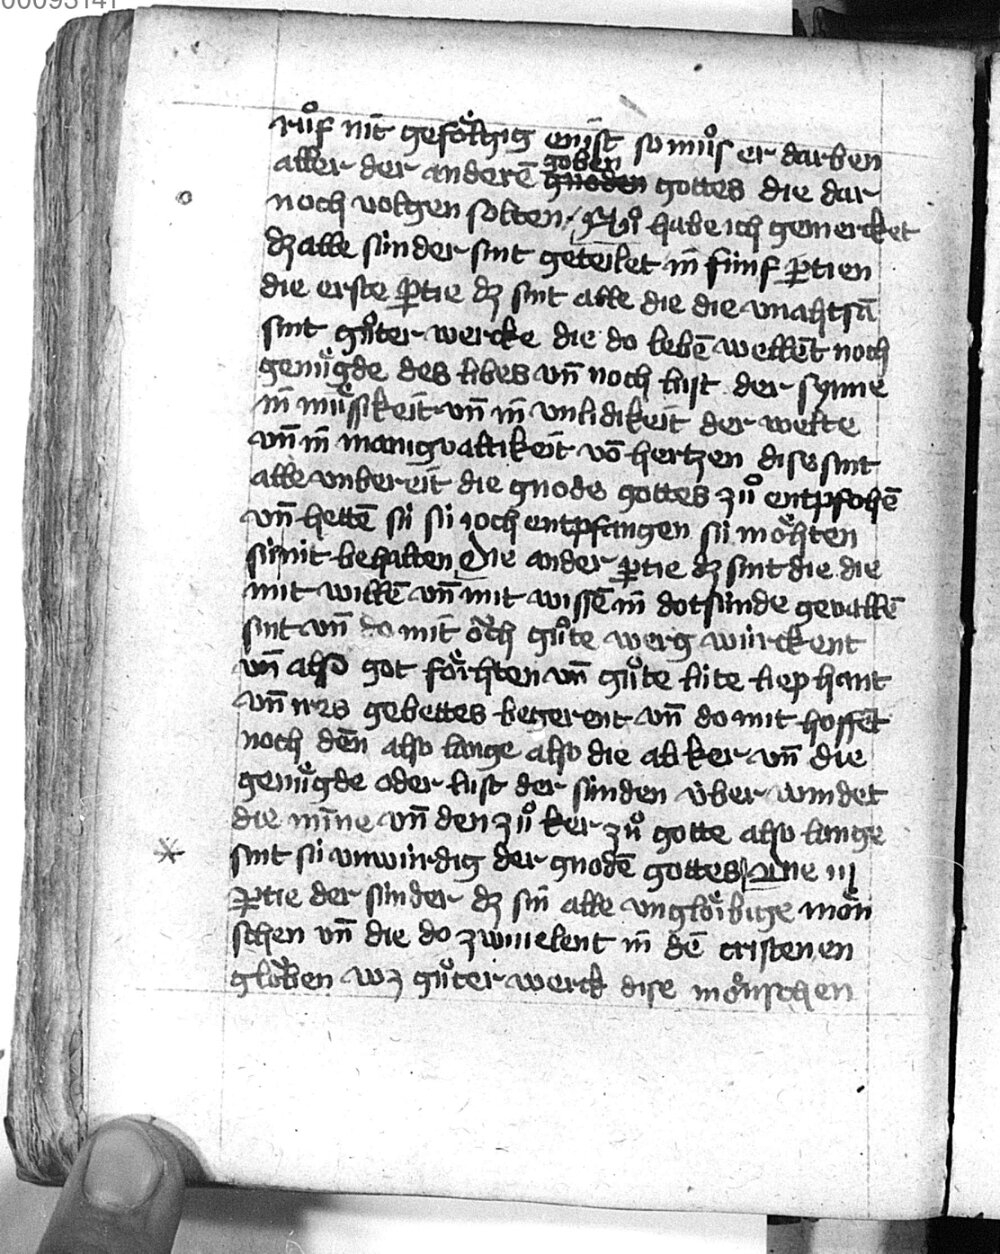 00093141
růf nit gefölgig enist so můs er darben
goben
aller der anderē gnoden gottes die dar
noch volgen solten / Nu habe ich gemercket
dz alle sünder sint geteilet in fünf ꝑtien
die erste ꝑtie dz sint alle die die vnahtsā
sint gůter wercke die do lebē wellēt noch
genügde des libes vn̄ noch lust der synne
in müssikeit vn̄ in vnlidikeit der welte
vn̄ in manigualtikeit vō hertzen dise sint
alle vnbereit die gnode gottes zů entpfohē
vn̄ hettē sü sü joch entpfangen sü möhten
sü nit behalten Die ander ꝑtie dz sint die die
mit willē vn̄ mit wissē in dotsünde geuallē
sint vn̄ do mit öch gůte werg würckent
vn̄ also got förhten vn̄ gůte lüte liep hant
vn̄ irs gebettes begerent vn̄ do mit hoffēt
noch dēn also lange also die abker vn̄ die
genügde oder lust der sünden überwindet
die mīne vn̄ den zů ker zů gotte also lange
sint sü vnwürdig der gnodē gottes Die iij
ꝑtie der sünder dz sin alle vnglöibige mön
schen vn̄ die do zwiuelent in dē cristenen
glöben wz gůter werck dise mönschen